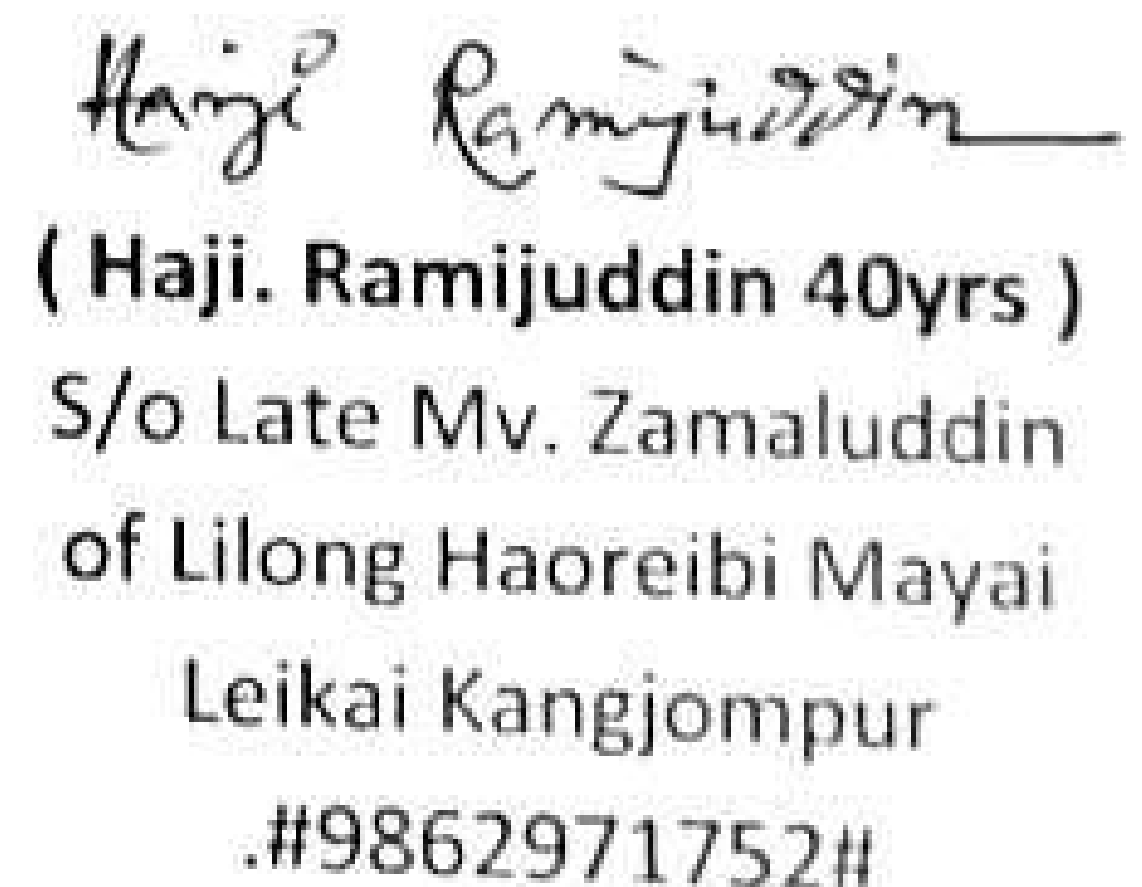 Hanji Ramijuddin
( Haji. Ramijuddin 40yrs )
S/o Late Mv. Zamaluddin
of Lilong Haoreibi Mayai
Leikai Kangjompur
.#9862971752#